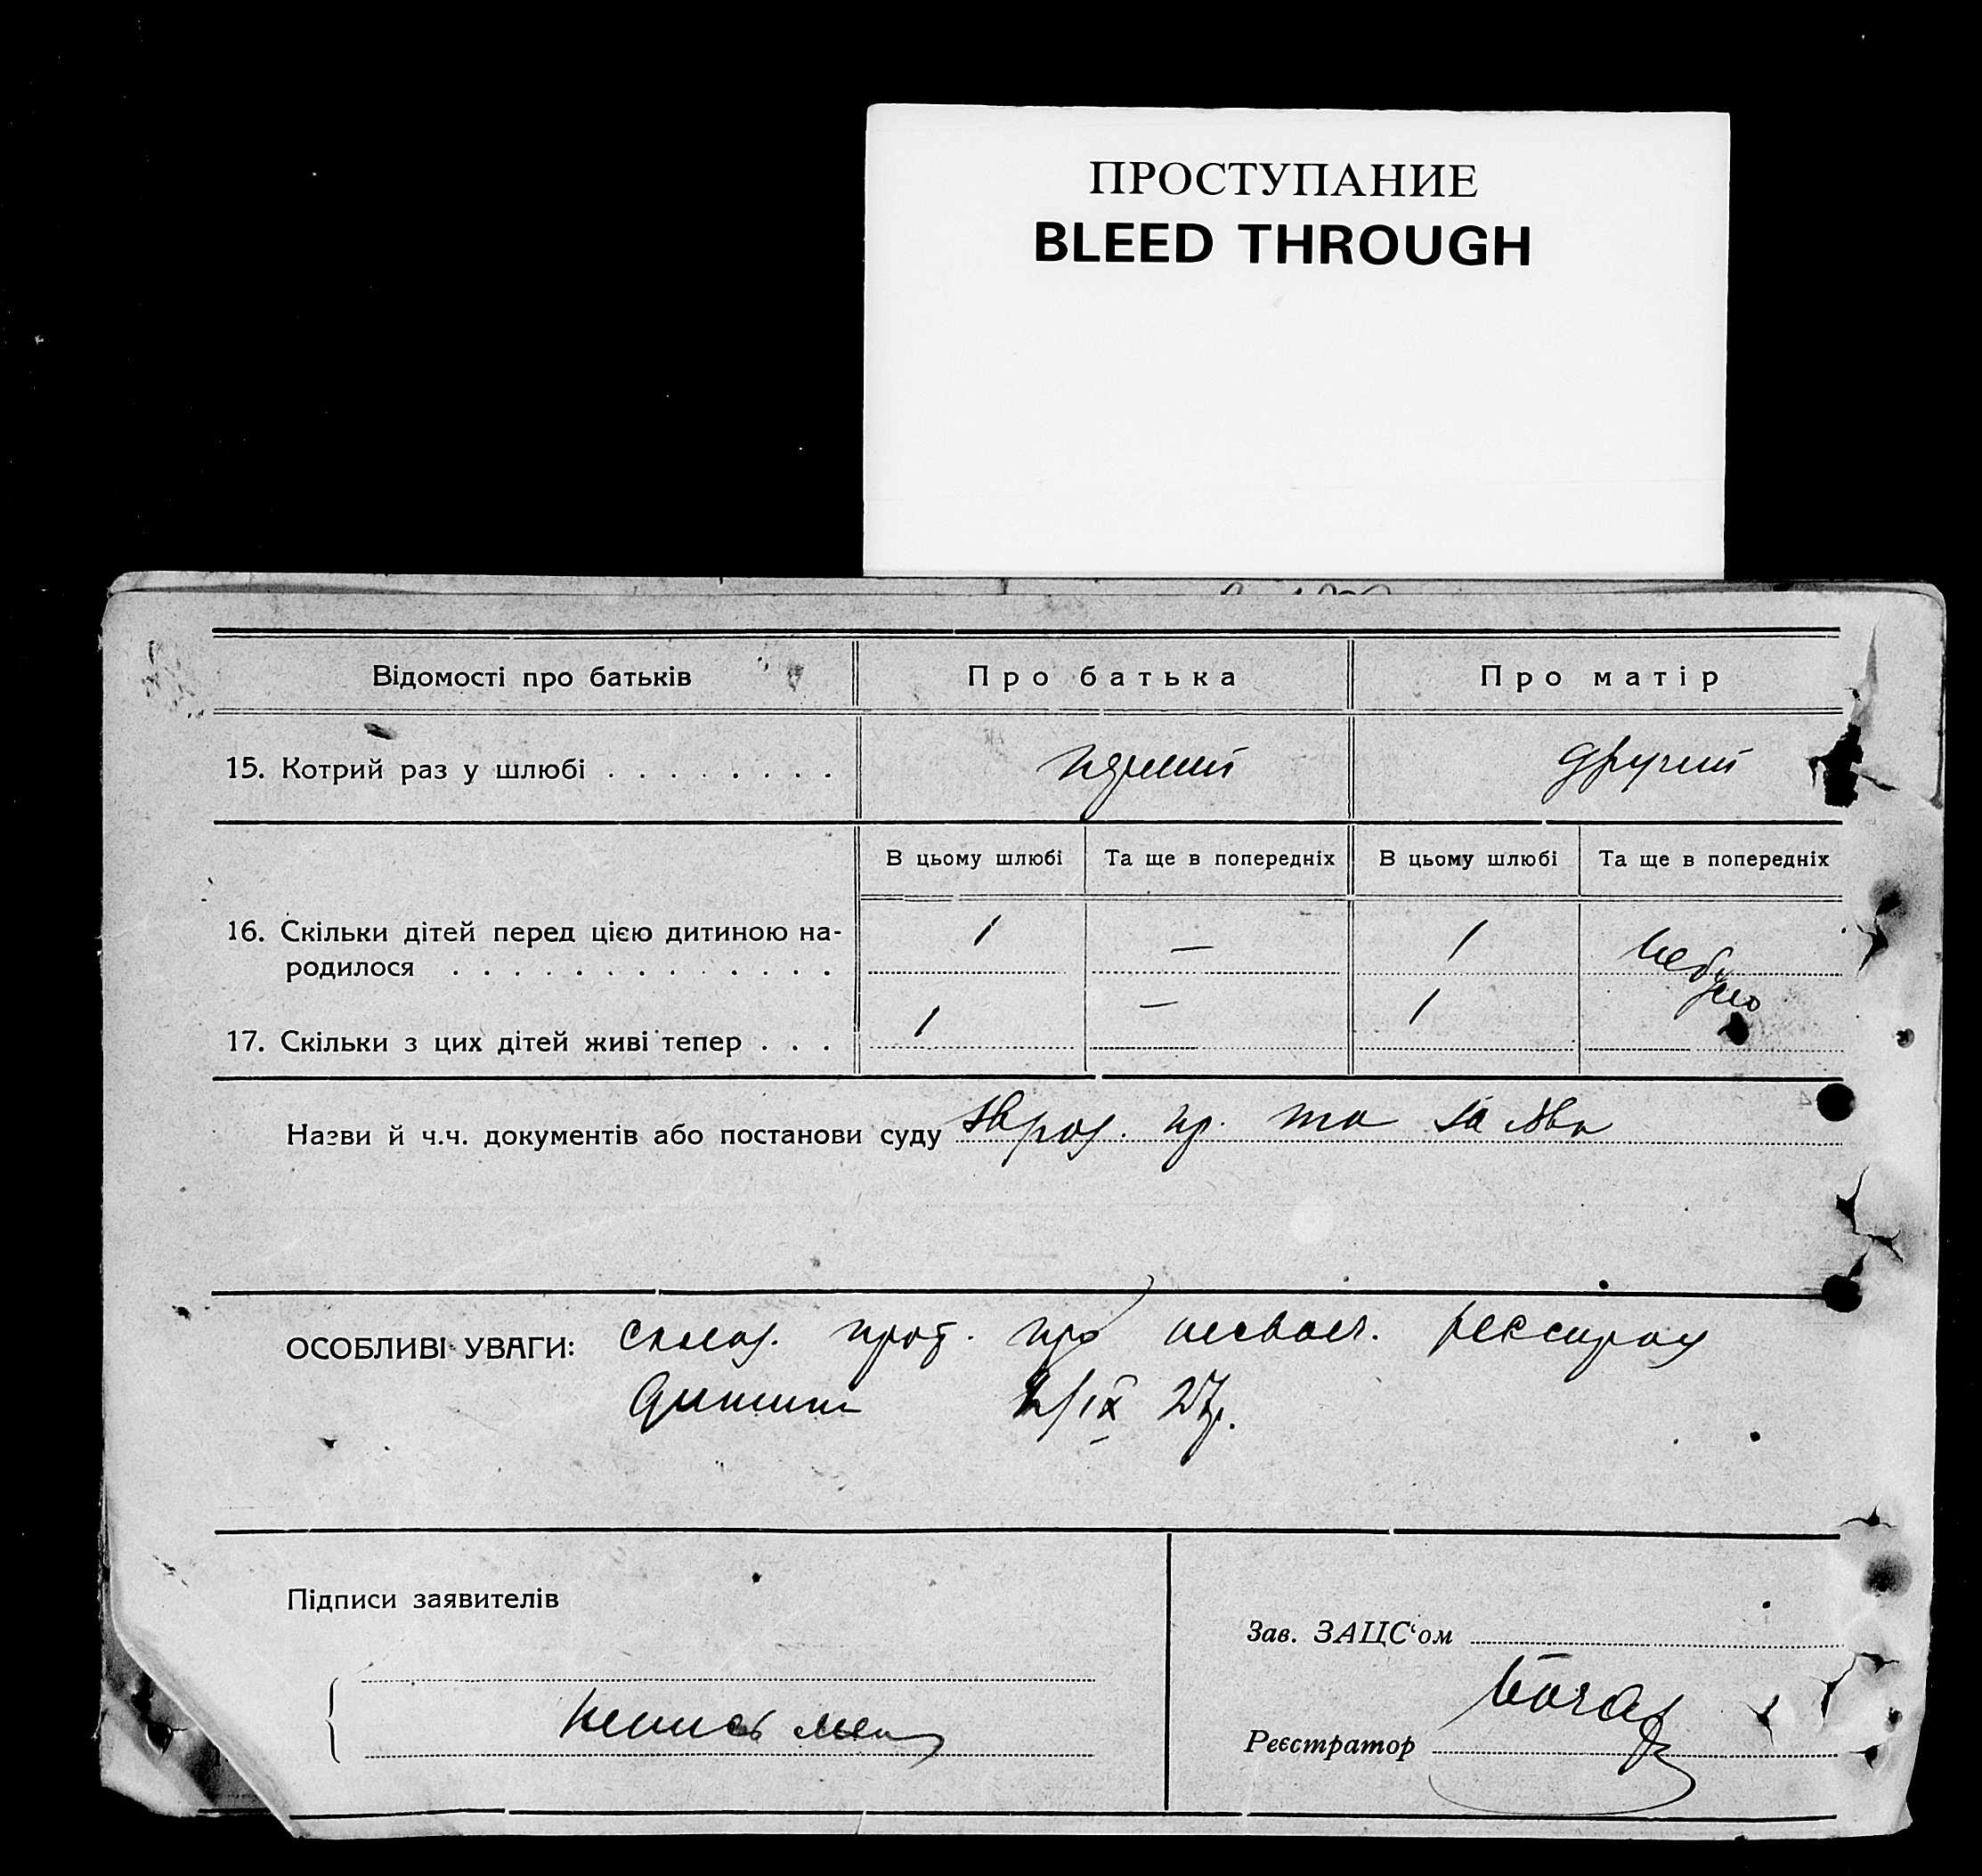 ПРОСТУПАНИЕ
BLEED THROUGH
Відомості про батьків
Про батька
Про матір
15. Котрий раз у шлюбі . . . . . . . .
другий
В цьому шлюбі
Та ще в попередніх
В цьому шлюбі
Та ще в попередніх
16. Скільки дітей перед цією дитиною на-
родилося . . . . . . . . . . . . .
1
—
1
не було
17. Скільки з цих дітей живі тепер . . .
1
—
1
Назви й ч.ч. документів або постанови суду
пр. та заява
ОСОБЛИВІ УВАГИ: прот. про
дитини /IX 27р.
Підписи заявителів
Зав. ЗАЦС‘ом
Реєстратор